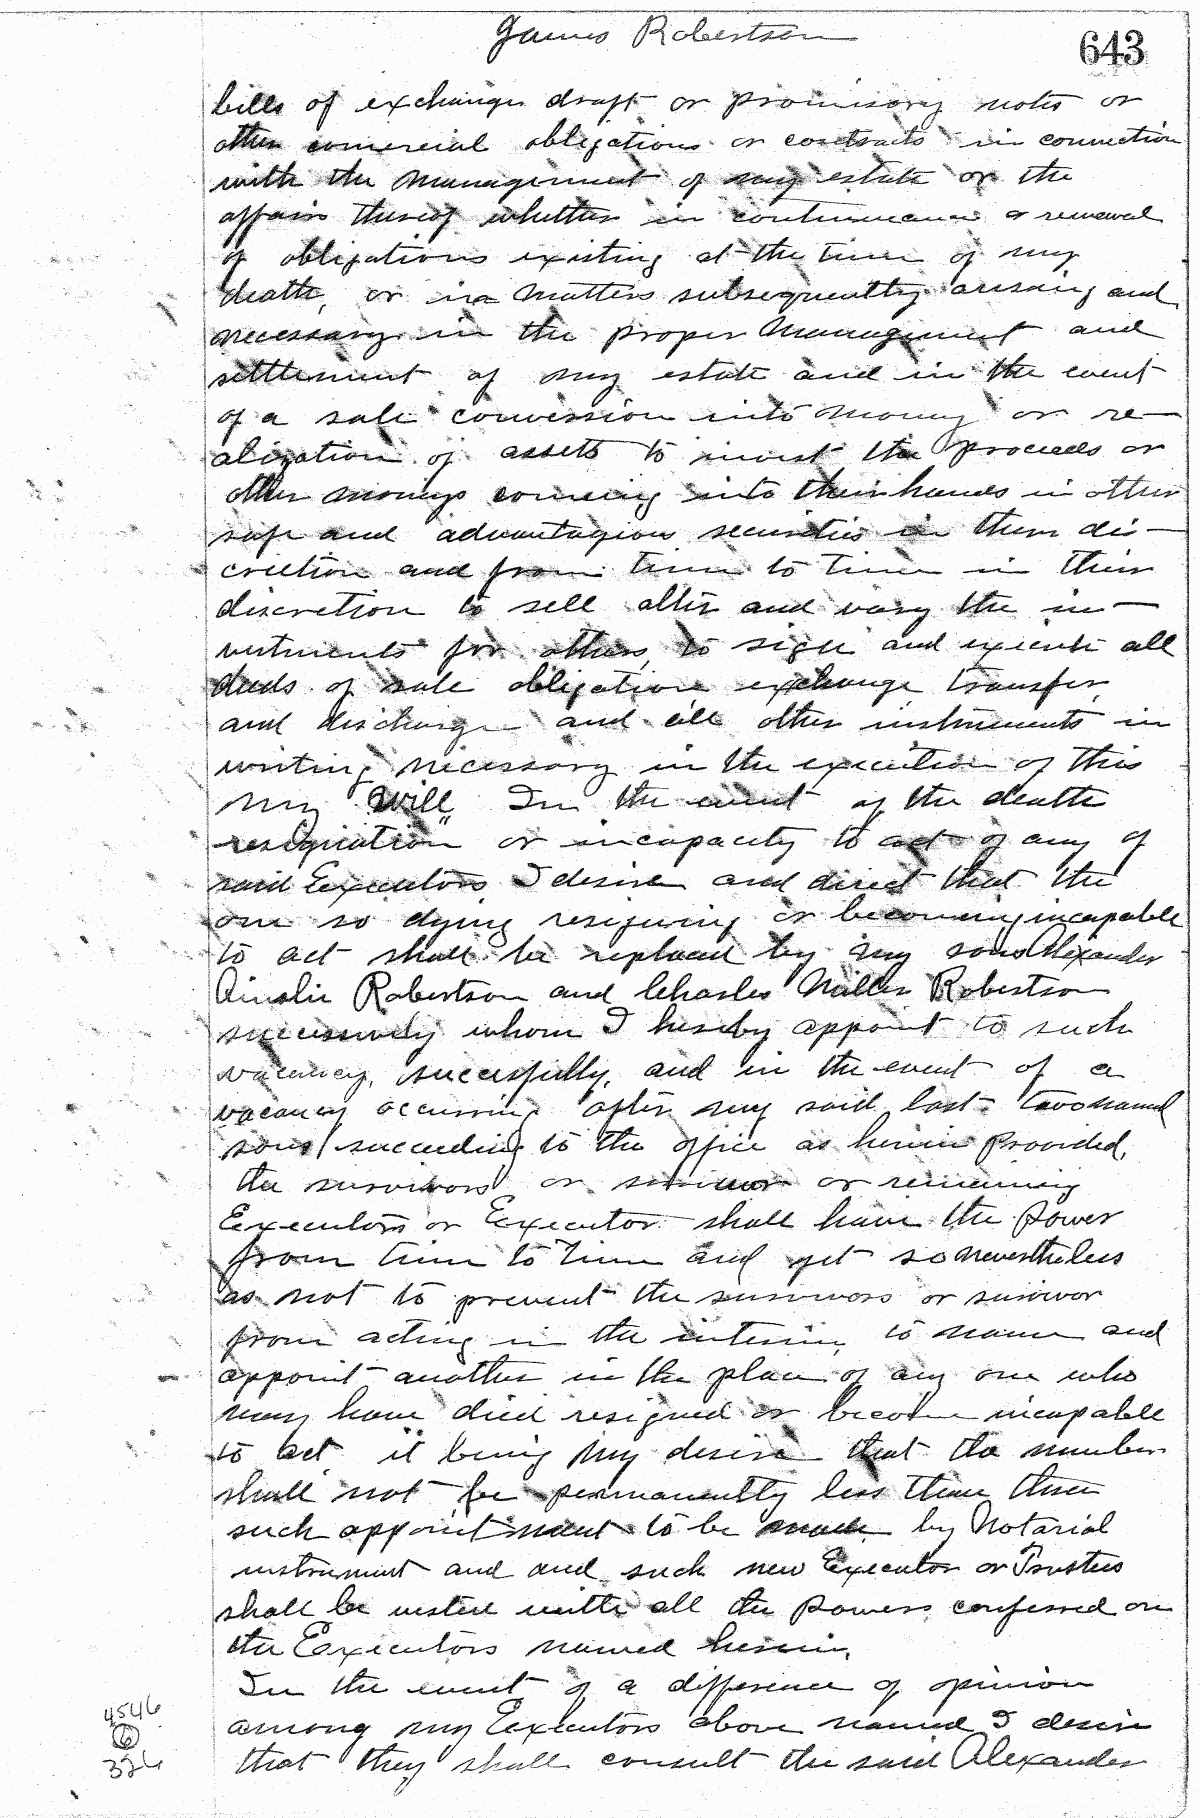 James Robertson
643
bills of exchange draft or promissory notes or
other comercial obligations or contracts in connection
with the management of my estate or the
affairs thereof whether in continuance or renewal
of obligations existing at the time of my
death, or in matters subsequently arising and
necessary in the proper management and
settlement of my estate and in the event
of a sale conversion into money or re-
alization of assets to invest the proceeds or
other moneys coming into their hands in other
safe and advantagious securities in their dis-
cretion and from time to time in their
discretion to sell alter and vary the in-
vestments for others, to sign and execute all
deeds of sale obligation exchange transfer,
and discharge and all other instruments in
writing necessary in the execution of this
my Will In the event of the death
resignation or incapacity to act of any of
said Executors I desire and direct that the
one so dying resigning or becoming incapable
to act shall be replaced by my sons Alexander
Ainslie Robertson and Charles Miller Robertson
successively whom I hereby appoint to such
vacancy, successfully, and in the event of a
vacancy occurring after my said last two named
sons succeeding to the office as herein Provided,
the survivors or survivor or remaining
Executors or Executor shall have the power
from time to time and yet so nevertheless
as not to prevent the survivors or survivor
from acting in the interim, to name and
appoint another in the place of any one who
may have died resigned or become incapable
to act it being my desire that the number
shall not be permanently less than three
such appointment to be made by Notarial
instrument and and such new Executor or Trustees
shall be vested with all the powers conferred on
the Executors named herein,
In the event of a difference of opinion
among my Executors above named I desire
that they shall consult the said Alexander
4546
6
326